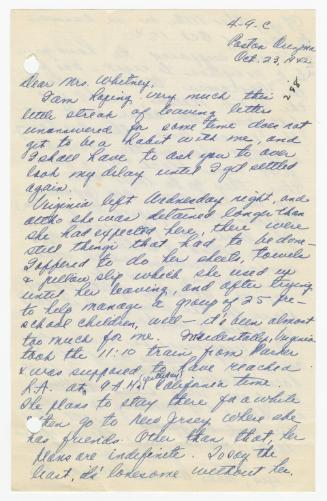 4-9-C
Poston Arizona
Oct. 23, 1942
Dear Mrs. Whitney,
I am hoping very much this
little streak of leaving letters
unanswered for some time does not
get to be a habit with me, and
I shall have to ask you to over
look my delay until I get settled
again.
Virginia left Wednesday night, and
altho she was detained longer than
she had expected here, there were
still things that had to be done-
I offered to do her sheets, towels
& pillow slip which she used up
until her leaving, and after trying
to help manage a group of 25 pre-
school children, well- it's been almost
too much for me. Incidentally, Virginia
took the 11:10 train from Parker
& was supposed to have reached
L.A. at 9 A.M. California time.
She plans to stay there for a while
then go to New Jersey where she
has friends. Other than that, her
plans are indefinite. To say the
least, it's lonesome without her.